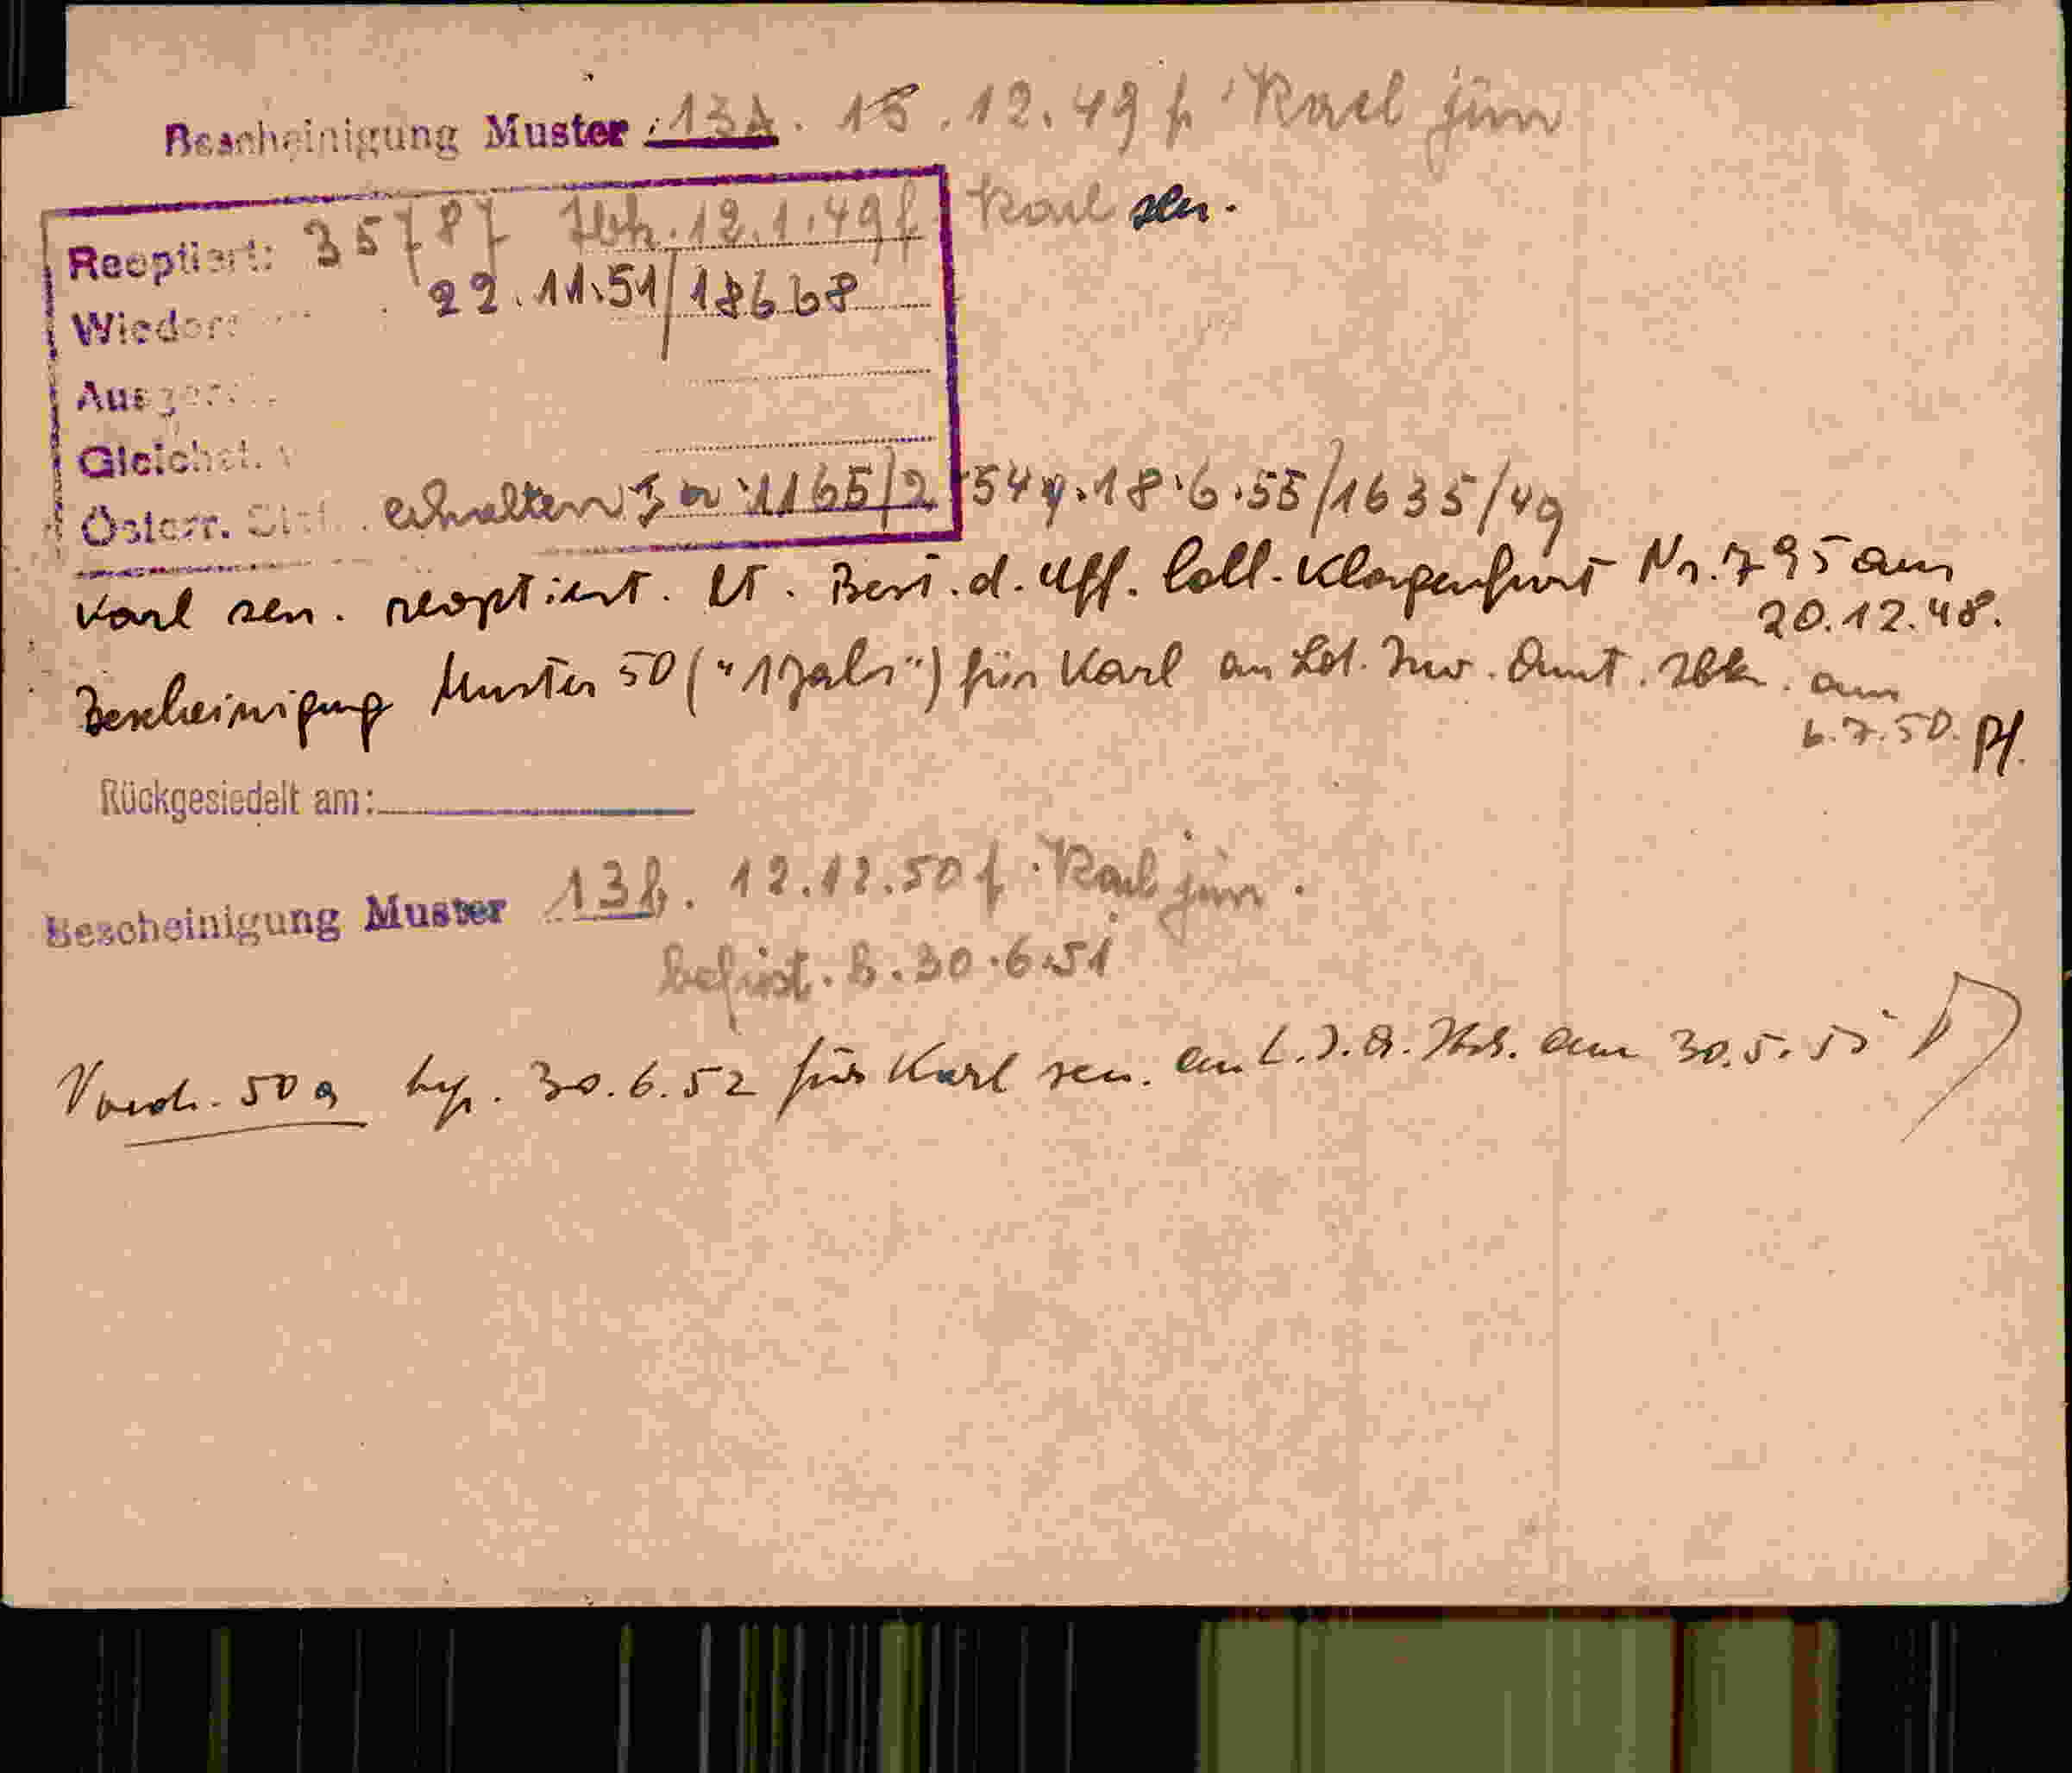 Bescheinigung Muster 13A. 15.12.49 f. Karl jun
Reoptiert: 35787 Ibk. 12.1.49 f. Karl sen.
22.11.51/18668
Gleichst.
Österr. erhalten 1165/2 18.6.55/1635/49
Karl sen. reoptiert. lt. Best. d. Uff. Coll. Klagenfurt Nr. 795 am
20.12.48.
Bescheinigung Muster 50 ("1 Jahr") für Karl an Ld. Inv. Amt. Ibk. am
6.7.50. Pf.
Rückgesiedelt am:
Bescheinigung Muster 13b. 12.12.50 f. Karl jun.
befrist. b. 30.6.51
50a 30.6.52 für Karl sen. an L.I.A. Ibk. am 30.5.